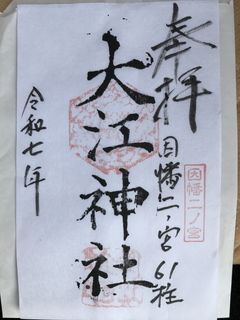 奉拝
因幡二ノ宮 61柱
因幡二ノ宮
大江神社
令和七年